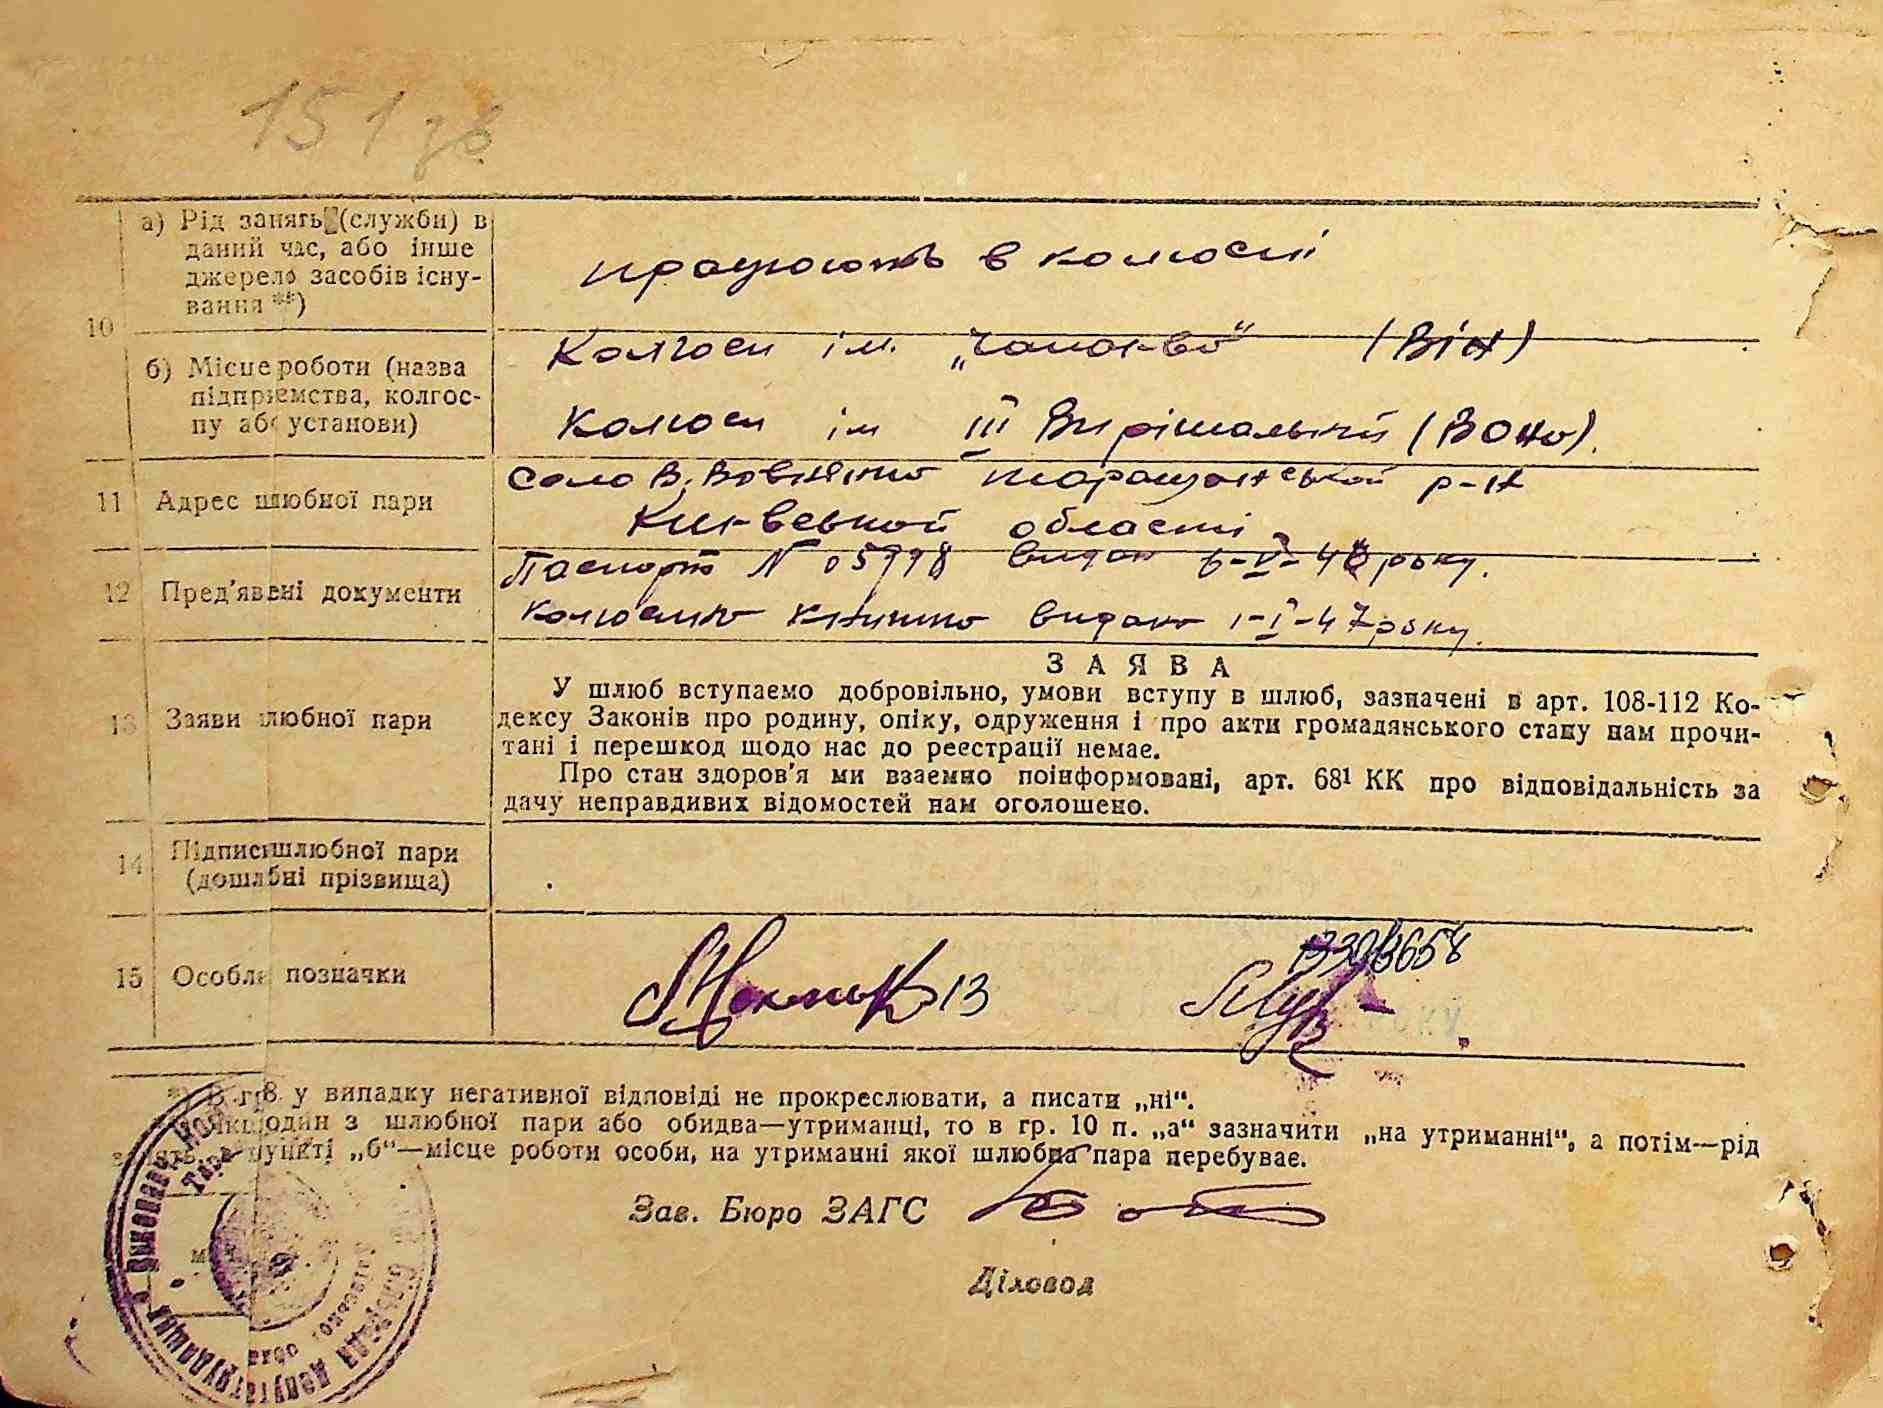 151 зв
а) Рід занять (служби) в
даний час, або інше
джерело засобів існу-
вання **)
працюють в колгоспі
10
б) Місце роботи (назва
підприємства, колгос-
пу або установи)
Колгосп ім. „Чапаєва" (Він)
Колгосп ім III Вирішальний (Вона).
11 Адрес шлюбної пари
Село В. Вовнянка Таращанський р-н
Київської області
12 Пред'явлені документи
Паспорт N 05998 видан 6-V-46 року.
Колгоспна книжка видана 1-I-47 року.
13 Заяви шлюбної пари
ЗАЯВА
У шлюб вступаємо добровільно, умови вступу в шлюб, зазначені в арт. 108-112 Ко-
дексу Законів про родину, опіку, одруження і про акти громадянського стану нам прочи-
тані і перешкод щодо нас до реєстрації немає.
Про стан здоров'я ми взаємно поінформовані, арт. 68¹ КК про відповідальність за
дачу неправдивих відомостей нам оголошено.
14 Підписи шлюбної пари
(дошлюбні прізвища)
15 Особливі позначки
13
*) В гр 8 у випадку негативної відповіді не прокреслювати, а писати „ні".
Якщо один з шлюбної пари або обидва—утриманці, то в гр. 10 п. „а" зазначити „на утриманні", а потім—рід
пункті „б"—місце роботи особи, на утриманні якої шлюбна пара перебуває.
Зав. Бюро ЗАГС
Діловод